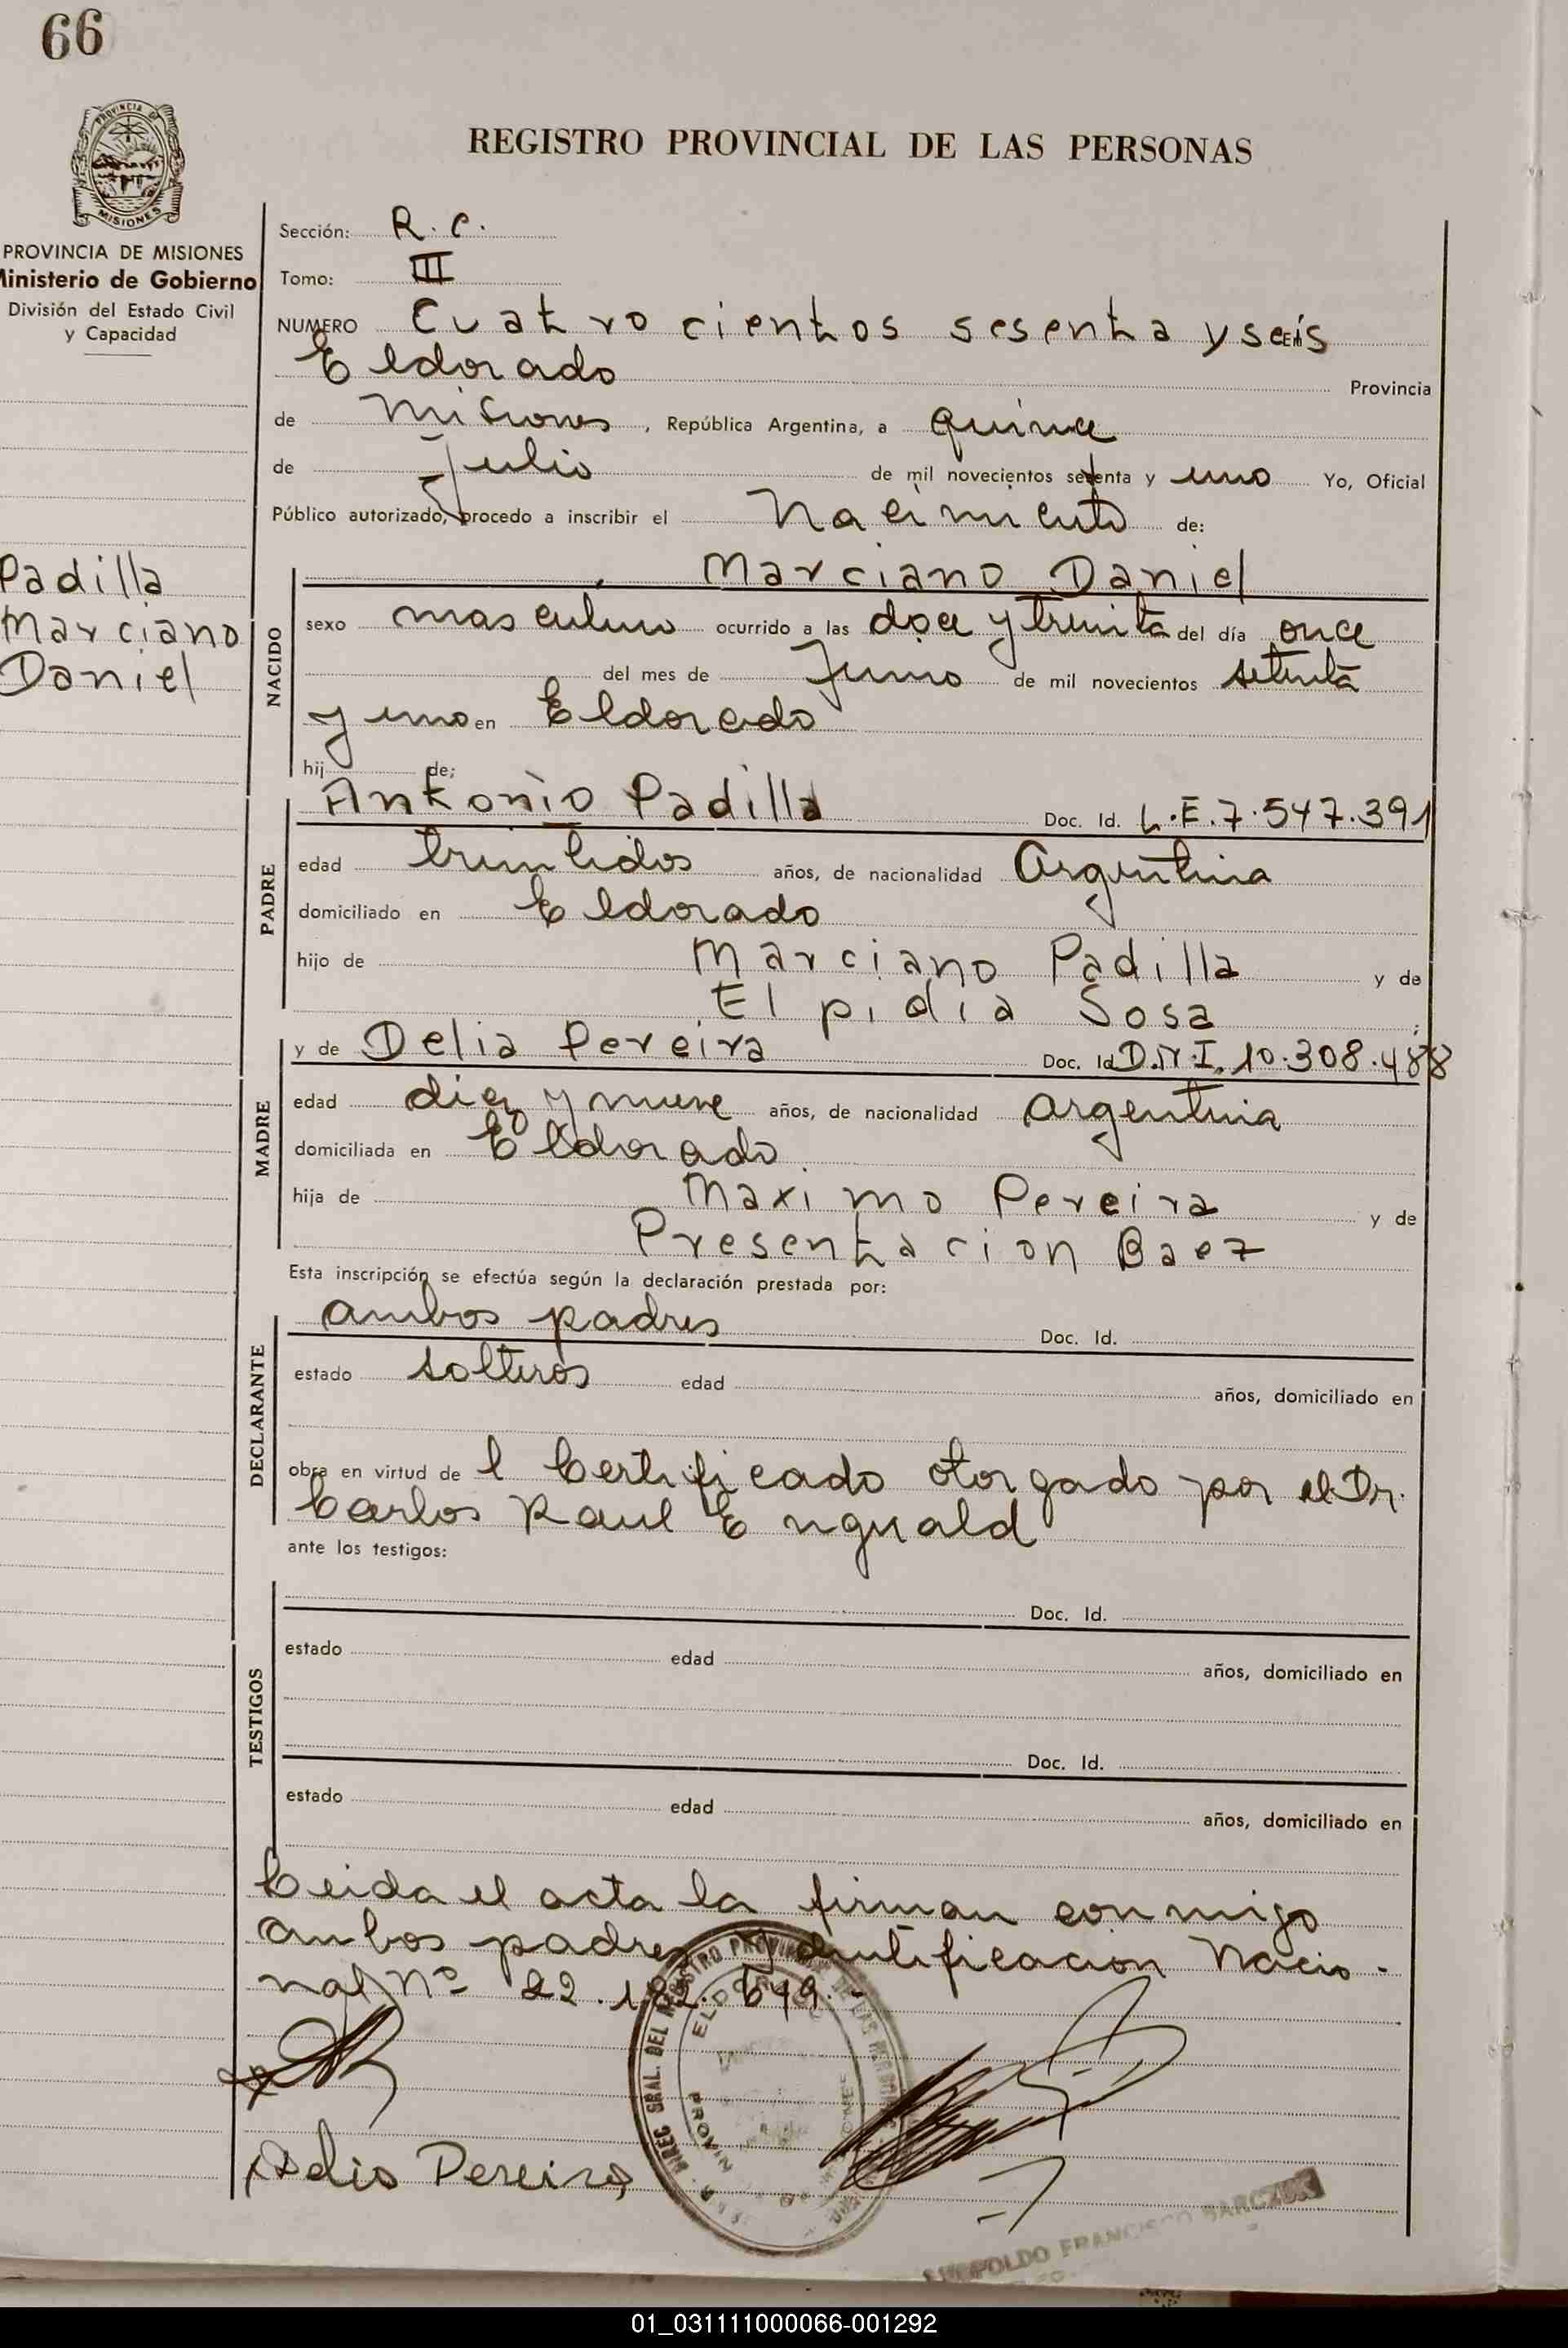 66
PROVINCIA DE
MISIONES
REGISTRO PROVINCIAL DE LAS PERSONAS
PROVINCIA DE MISIONES
Ministerio de Gobierno
División del Estado Civil
y Capacidad
Sección: R. C.
Tomo: III
NUMERO Cuatrocientos sesenta y seis
Eldorado Provincia
de Misiones, República Argentina, a quince
de Julio de mil novecientos setenta y uno Yo, Oficial
Público autorizado, procedo a inscribir el nacimiento de:
Padilla
Marciano
Daniel
NACIDO
Marciano Daniel
sexo masculino ocurrido a las doce y treinta del día once
del mes de Junio de mil novecientos setenta
y uno en Eldorado
hij de;
PADRE
Antonio Padilla Doc. Id. L.E.7.547.391
edad treintidos años, de nacionalidad Argentina
domiciliado en Eldorado
hijo de Marciano Padilla y de
Elpidia Sosa ;
MADRE
y de Delia Pereira Doc. Id D.N.I. 10.308.488
edad diez y nueve años, de nacionalidad argentina
domiciliada en Eldorado
hija de Maximo Pereira y de
Presentacion Baez
Esta inscripción se efectúa según la declaración prestada por:
DECLARANTE
ambos padres Doc. Id.
estado solteros edad años, domiciliado en
obra en virtud de l Certificado otorgado por el Dr.
Carlos Raul
ante los testigos:
TESTIGOS
Doc. Id.
estado edad años, domiciliado en
Doc. Id.
estado edad años, domiciliado en
Leida el acta la firman conmigo
ambos padres Identificacion Nacio-
nal Nº 22.182.649.-
DIREC. GRAL. DEL REGISTRO PROVINCIAL DE LAS PERSONAS
ELDORADO
Delia Pereira
LEOPOLDO FRANCISCO BARCZUK
01_031111000066-001292